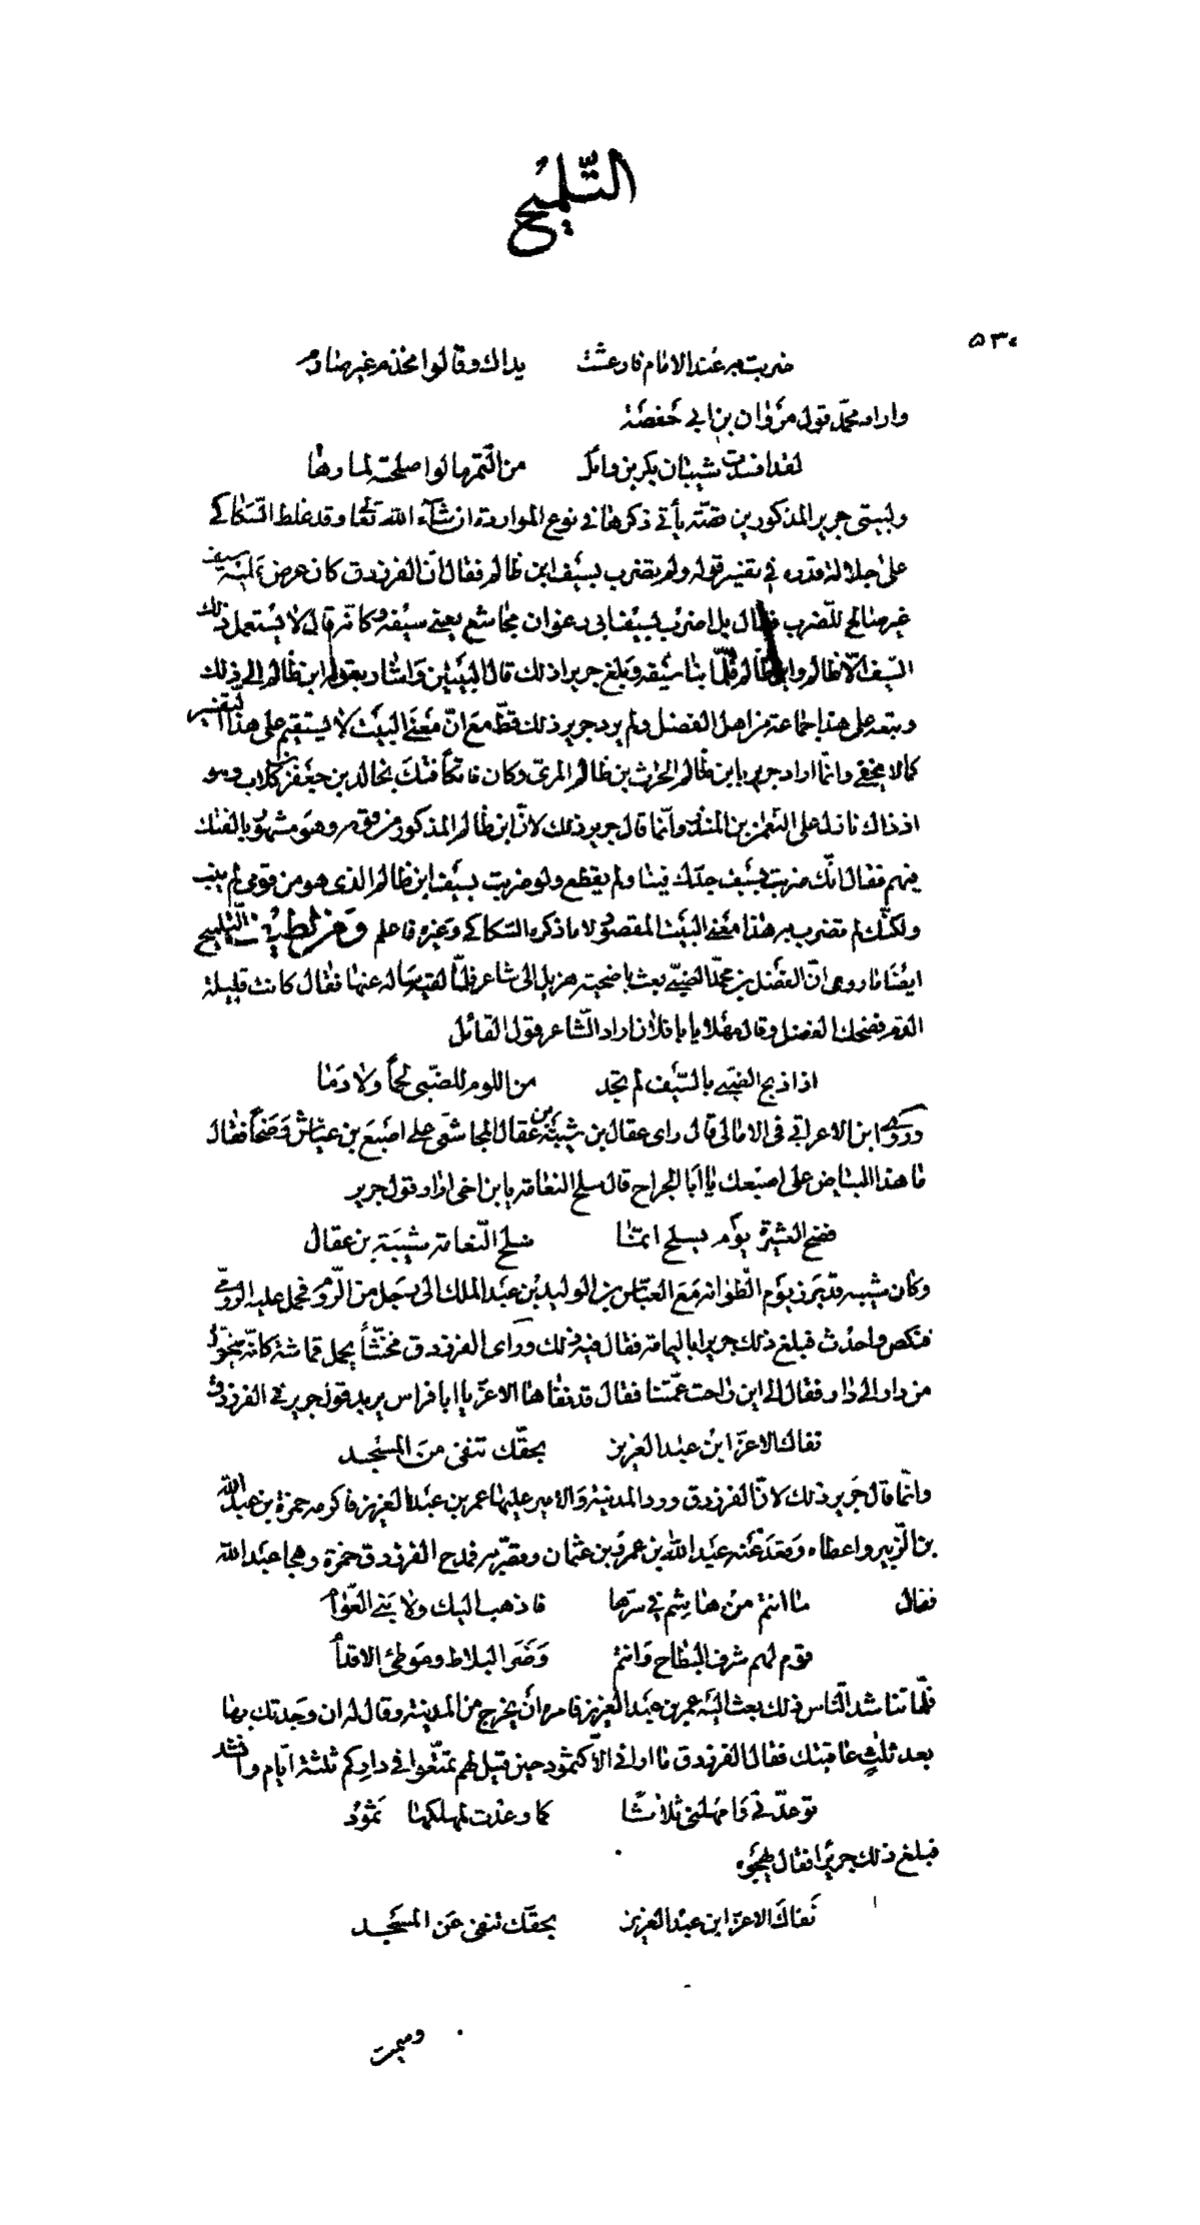 التّلميح
٥٣٠
ضربت به عند الامام فارعشت يداك وقالوا مخذم غير صارم
واراد محمّد قول مروان بن ابي حفصة
لقد افسدت شيبان بكر بن وائل من التمر مالوا صلحته لمارها
ولبيتى جرير المذكورين قصّة يأتى ذكرها فى نوع المواردة ان شآء الله تعا وقد غلط السّكاكے
على جلالة قدره فى تفسير قوله ولم يضرب بسيف ابن ظالم فقال انّ الفرزدق كان عرض عليه سيف
غير صالح للضرب فقال بل اضرب بسيف ابى رغوان مجاشع يعنى سيفه وكانّه قال لا يستعمل ذلك
السّيف الّا ظالم وابن ظالم فلمّا نبا سيفه وبلغ جريرا ذلك قال البيتين واشار بقوله ابن ظالم الى ذلك
وتبعه على هذا جماعة من اهل الفضل ولم يرد جرير ذلك قطّ مع انّ معنى البيت لا يستقيم على هذا التفسير
كما لا يخفى وانّما اراد جرير بابن ظالم الحرث بن ظالم المرىّ وكان فاتكاً فتك بخالد بن جعفر بن كلاب وهو
اذ ذاك نازل على النعمن بن المنذر وانّما قال جرير ذلك لانّ ابن ظالم المذكور من قومه وهو مشهور بالفتك
فيهم فقال انّك ضربت بسيف جدّك فينا ولم يقطع ولو ضربت بسيف ابن ظالم الذى هو من قومى لم ينب
ولكنّك لم تضرب به هذا معنى البيت المقصود لا ما ذكره السّكاكى وغيره فاعلم ومن لطيف التّلميح
ايضًا ما روى انّ الفضل بن محمّد الضبّى بعث باضحية هزيل الى شاعر فلمّا لقيه ساله عنها فقال كانت قليلة
الدّم فضحك الفضل وقال مهلا يا با فلان اراد الشّاعر قول القائل
اذا ذبح الضبّى بالسّيف لم تجد من اللوم للضبّى لحماً ولا دما
وروى ابن الاعرابى فى الامالى قال راى عقال بن شيبة بن عقال المجاشعى على اصبع بن عيّاش وضحاً فقال
ما هذا البياض على اصبعك يا ابا الجراح قال سلح النعامة يا بن اخى اراد قول جرير
فضح العشيرة يوم يسلح ائمّا سلح النّعامة شيبة بن عقال
وكان شيبه قد برز يوم الطّوانه مع العبّاس بن الوليد بن عبد الملك الى رجل من الرّوم فحمل عليه الرّومىّ
فنكص واحدث فبلغ ذلك جريرا باليمامة فقال فيه ذلك وراى الفرزدق مخنّثاً يحمل قماشه كانّه يتحوّل
من دار الى دار فقال الى اين راحت عمّتنا فقال قد نفاها الاعزّ يا ابا فراس يريد قول جرير فى الفرزدق
نفاك الاعزّ ابن عبد العزيز بحقّك تنفى من المسجد
وانّما قال جرير ذلك لانّ الفرزدق ورد المدينة والامير عليها عمر بن عبد العزيز فاكرمه حمزة بن عبد الله
بن الزّبير واعطاه وقعد عنه عبد الله بن عمرو بن عثمان وقصّر به فمدح الفرزدق حمزة وهجا عبد الله
فقال ما انتم من هاشم فى سرّها فاذهب اليك ولا بنى العوّام
قوم لهم شرف البطاح وانتم وضر البلاط وموطئ الاقدام
فلمّا تناشد النّاس ذلك بعث اليه عمر بن عبد العزيز فامره ان يخرج من المدينة وقال له ان وجدتك بها
بعد ثلث عاقبتك فقال الفرزدق ما ارانى الّا كثمود حين قيل لهم تمتّعوا فى داركم ثلثة ايّام وانشد
توعّدنى وامهلنى ثلاثا كما وعدت لمهلكها ثمود
فبلغ ذلك جريرا فقال يهجوه
نفاك الاعزّ ابن عبد العزيز بحقّك تنفى عن المسجد